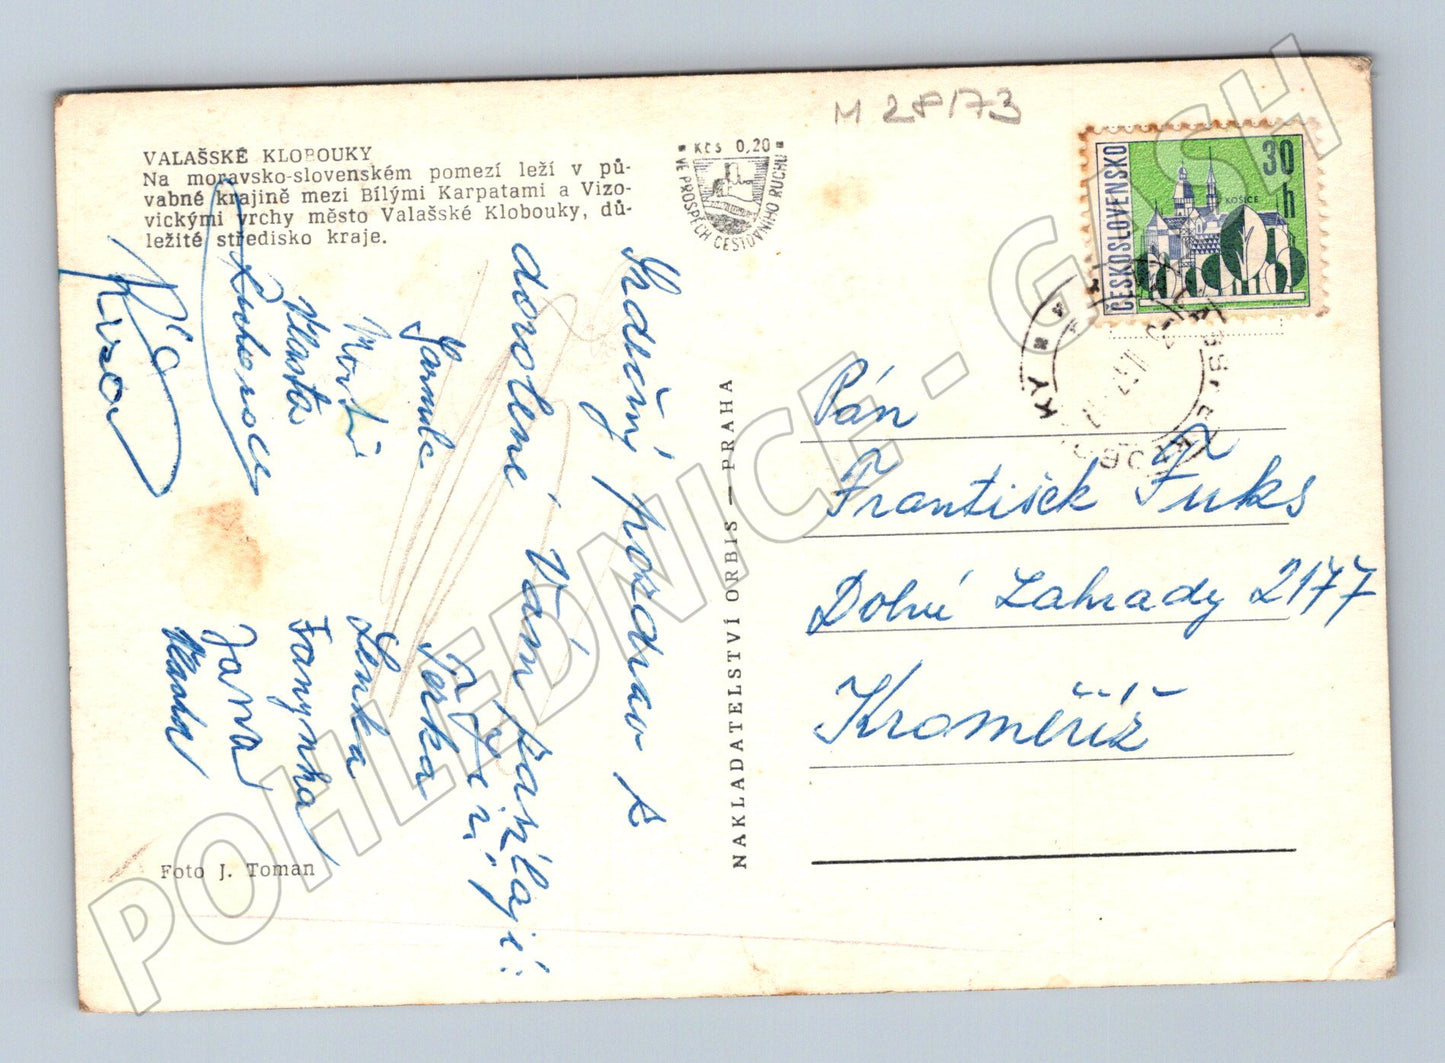 M 28/73
VALAŠSKÉ KLOBOUKY
Na moravsko-slovenském pomezí leží v pů-
vabné krajině mezi Bílými Karpatami a Vizo-
vickými vrchy město Valašské Klobouky, dů-
ležité středisko kraje.
Kčs 0,20
VE PROSPĚCH CESTOVNÍHO RUCHU
ČESKOSLOVENSKO
30 h
KOŠICE
Srdečný pozdrav z
dovolené Vám
posílají:
Jarmila
Vlasta
Terka
Lenka
Fanynka
Jana
NAKLADATELSTVÍ ORBIS — PRAHA
Pán
František Fuks
Dolní Zahrady 2177
Kroměříž
Foto J. Toman
POHLEDNICE - GUSH